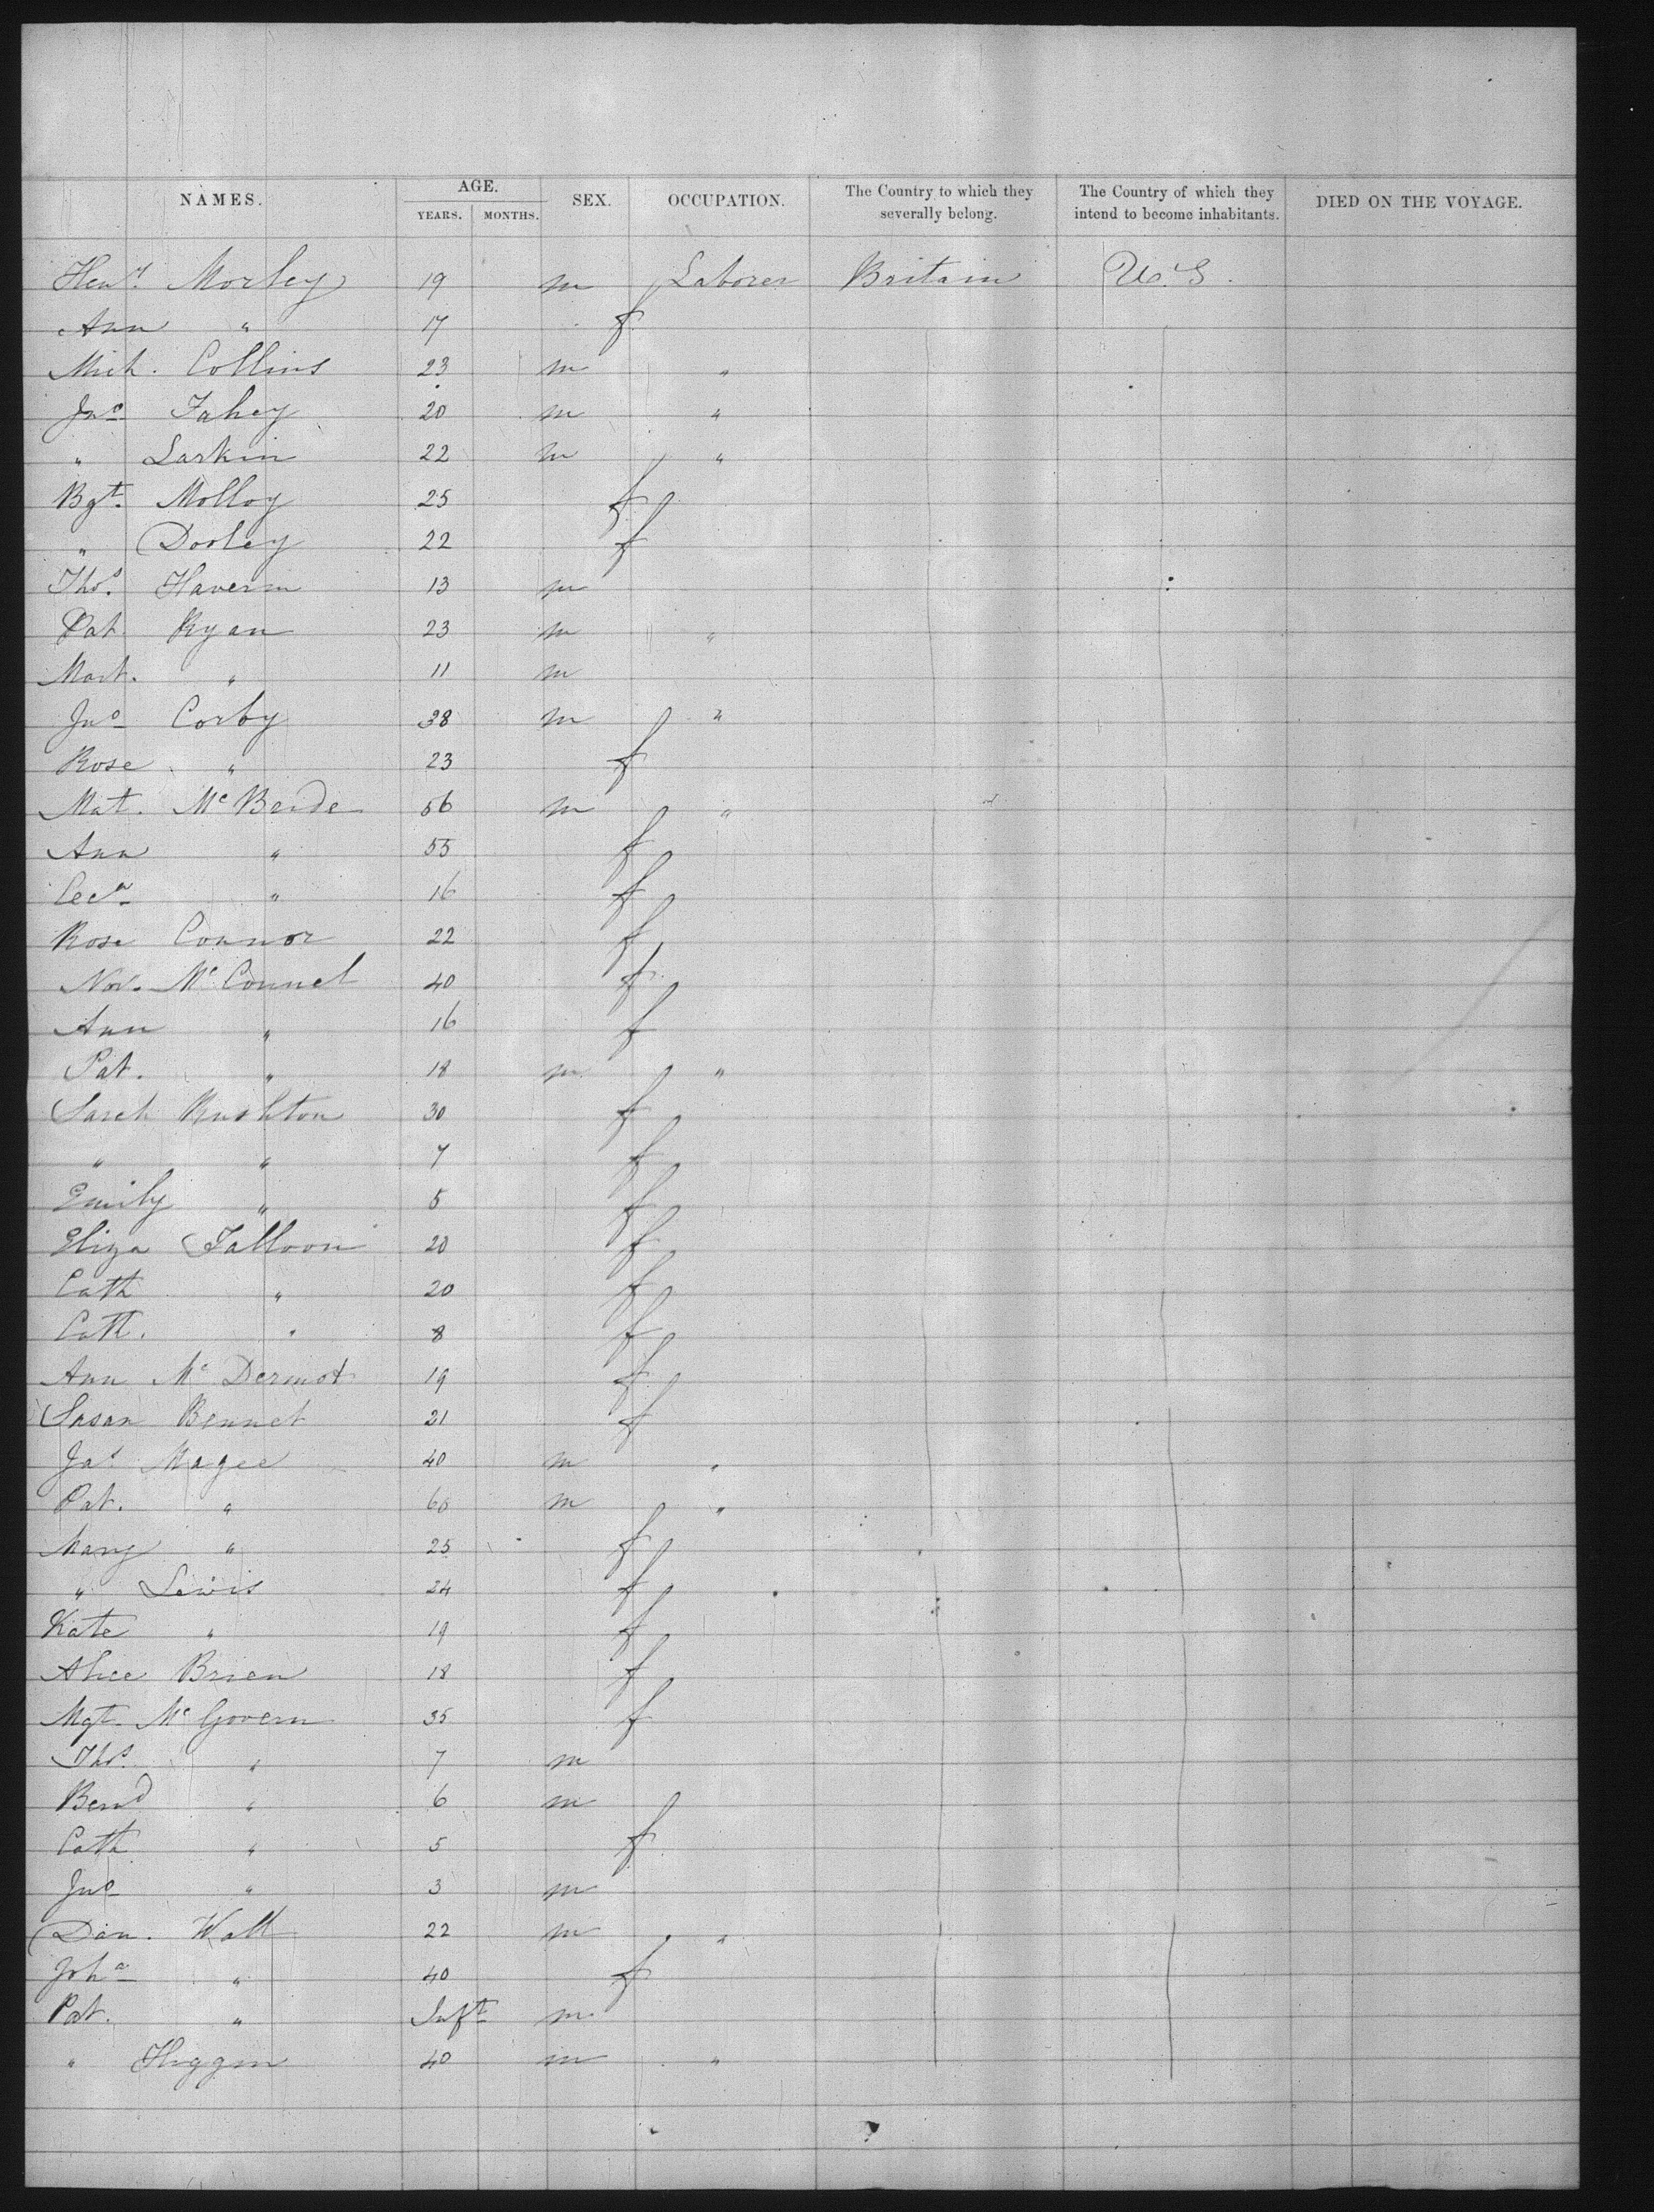 NAMES. AGE. YEARS. MONTHS. SEX. OCCUPATION. The Country to which they severally belong. The Country of which they intend to become inhabitants. DIED ON THE VOYAGE.
Heny. Morley 19 m Laborer Britain U.S.
Ann " 17 f
Mich. Collins 23 m "
Jno Fahey 20 m "
" Larkin 22 m "
Bgt. Molloy 25 f
" Dooley 22 f
Thos. Haverin 13 m
Pat Ryan 23 m "
Mart. " 11 m
Jno Corby 38 m "
Rose " 23 f
Mat. McBride 56 m "
Ann " 55 f
Ceca " 16 f
Rose Connor 22 f
Nor. McConnel 40 f
Ann " 16 f
Pat. " 18 m "
Sarah Rushton 30 f
" " 7 f
Emily " 5 f
Eliza Falloon 20 f
Cath " 20 f
Cath. " 8 f
Ann McDermot 19 f
Susan Bennet 21 f
Jas Magee 40 m "
Pat. " 60 m "
Mary " 25 f
" Lewis 24 f
Kate " 19 f
Alice Brien 18 f
Mgt. McGovern 35 f
Thos. " 7 m
Bernd " 6 m
Cath " 5 f
Jno " 3 m
Dan. Wall 22 m "
Joha " 40 f
Pat. " Inft m
" Higgin 40 m "